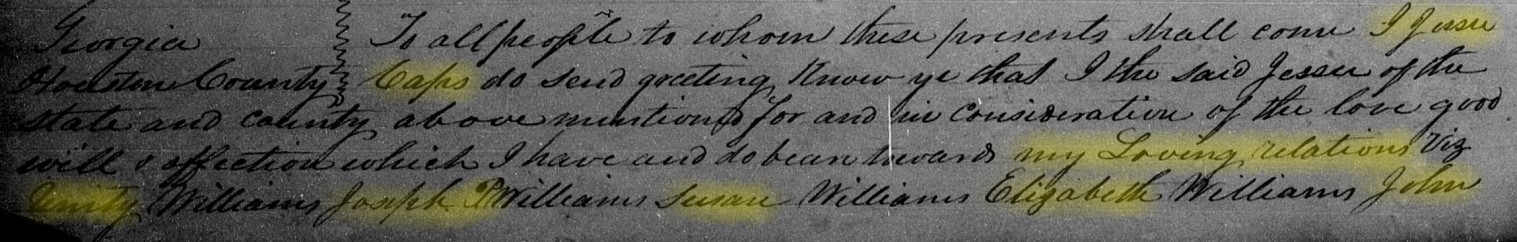 Georgia } To all people to whom these presents shall come I Jesse
Houston County } Caps do send greeting Know ye that I the said Jesse of the
state and county above mentiond for and in consideration of the love good
will & affection which I have and do bear towards my Loving relations Viz
Unity Williams Joseph P Williams Susan Williams Elizabeth Williams John